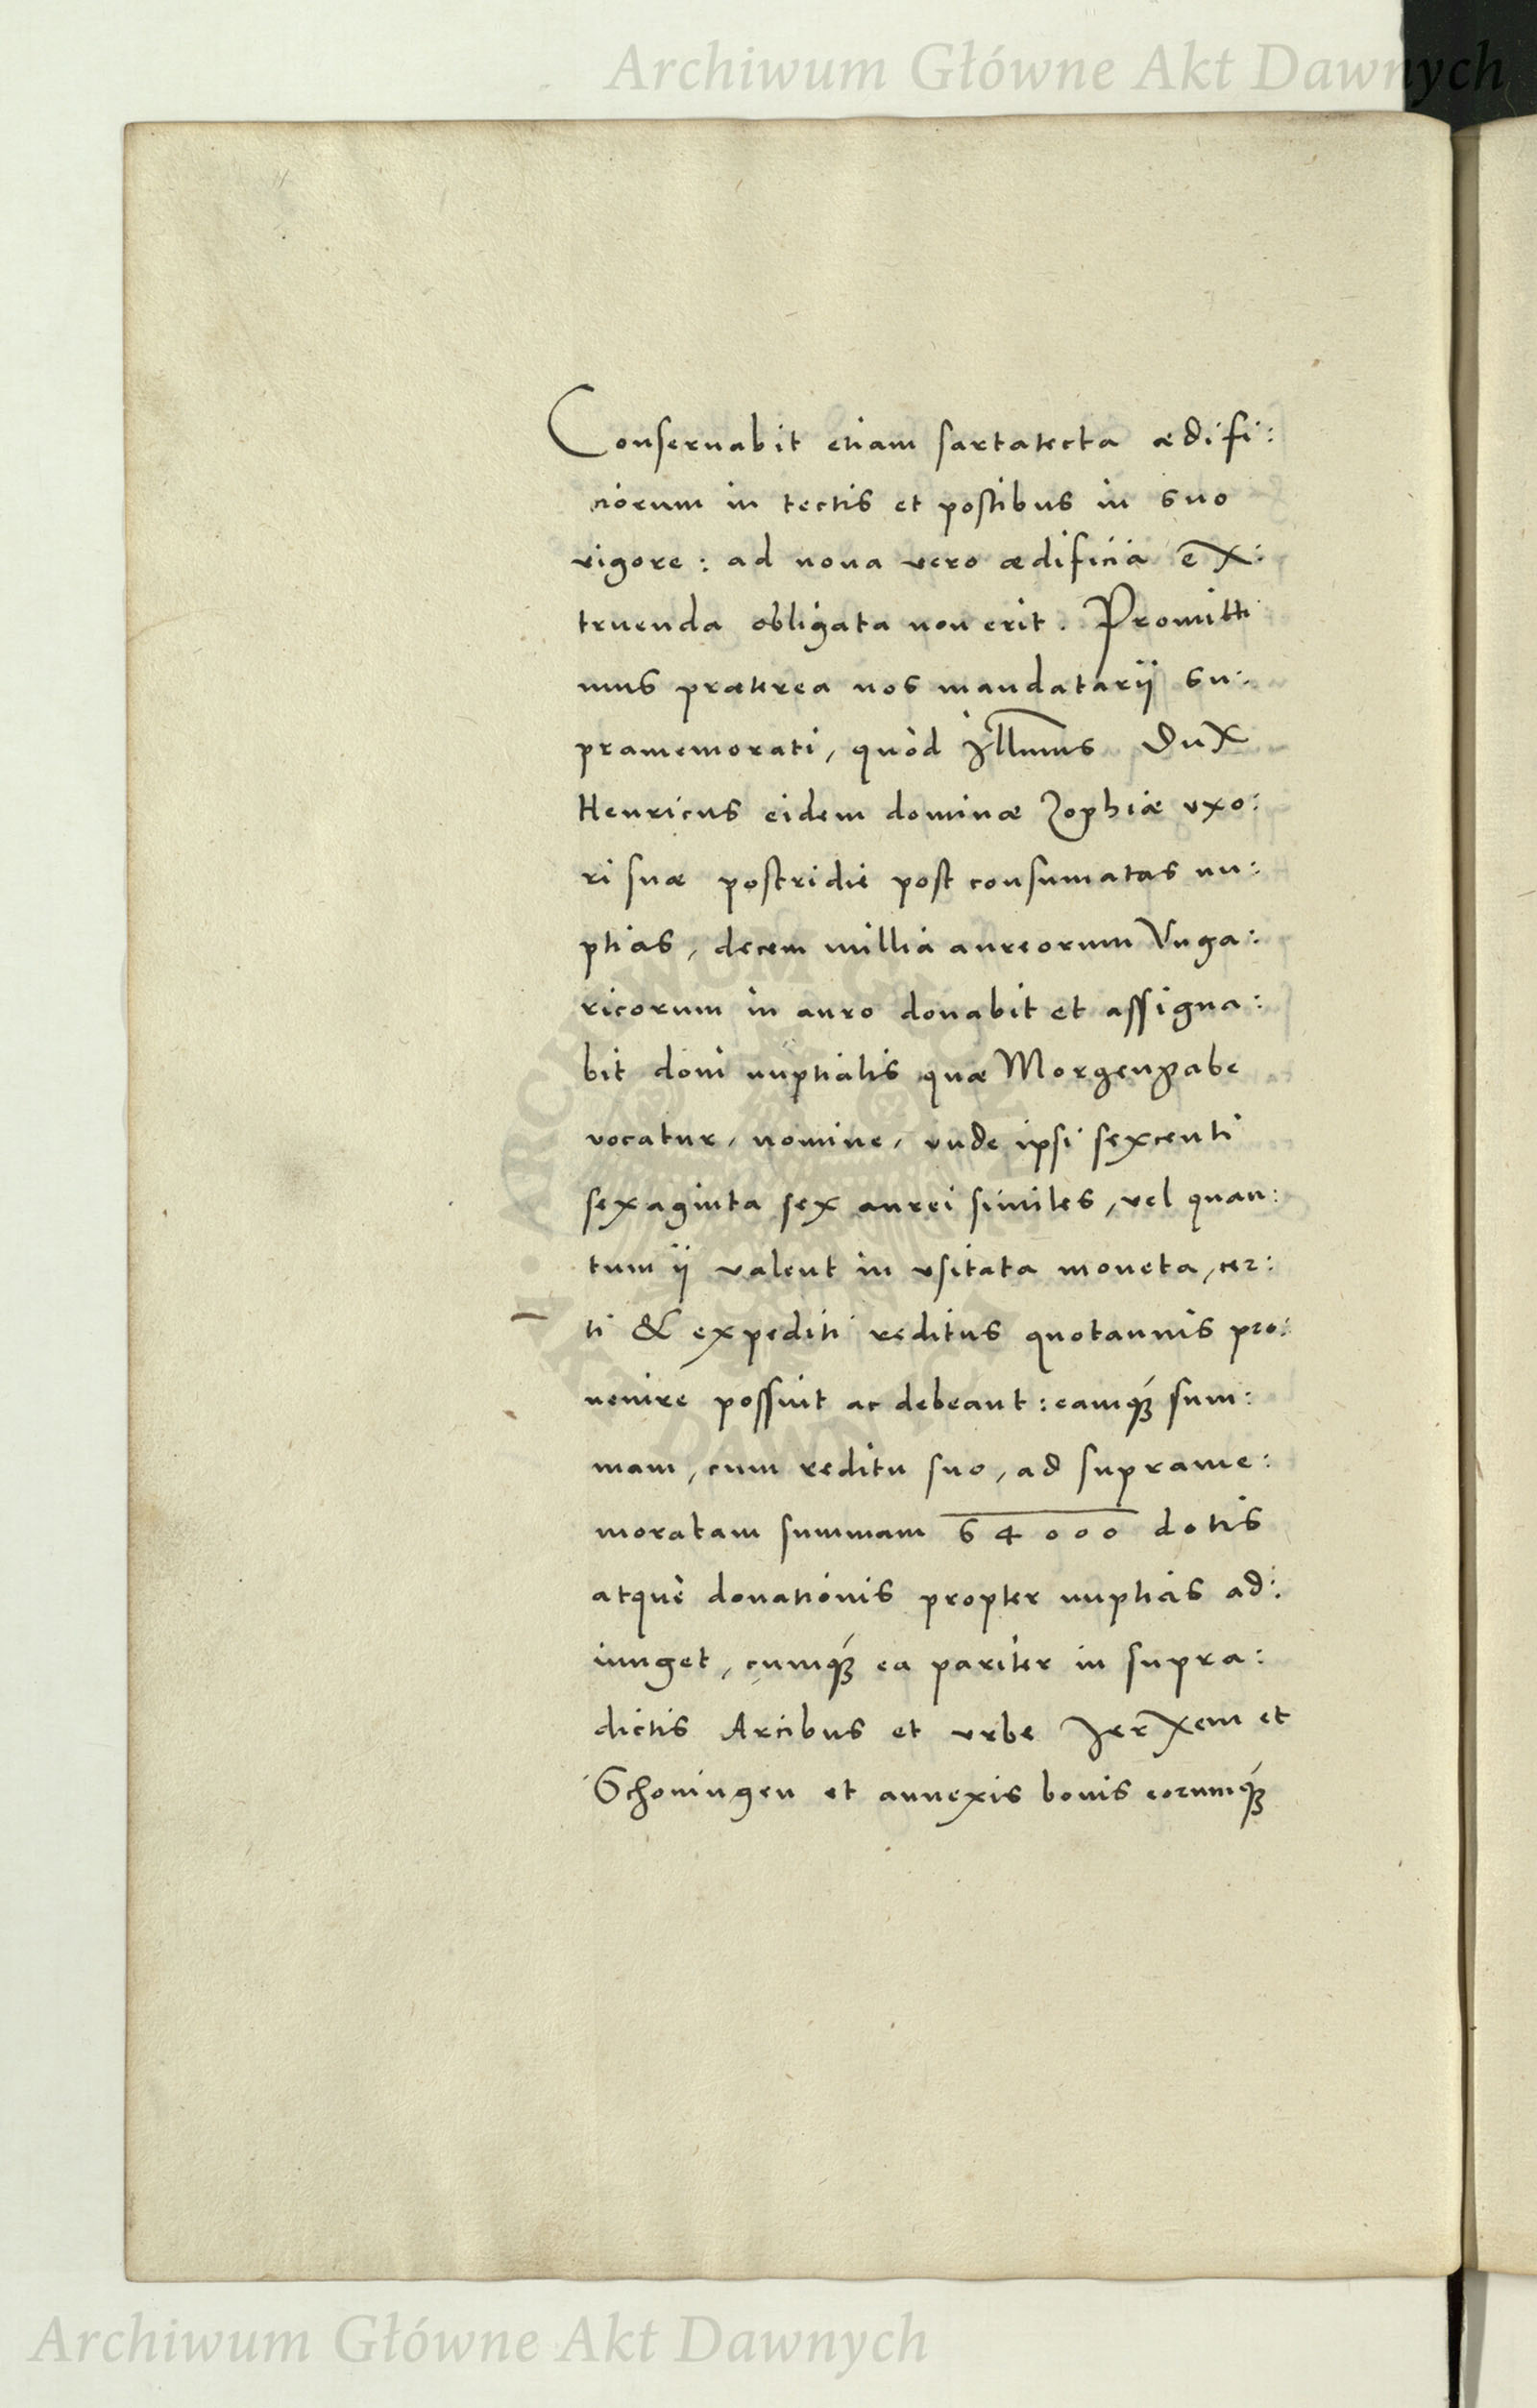 Archiwum Główne Akt Dawnych
Conseruabit etiam sartatecta ædifi:
ciorum in tectis et postibus in suo
vigore: ad noua vero ædificia ex:
truenda obligata non erit. Promitti
mus præterea nos mandatarij su:
pramemorati, quòd Illmus Dux
Henricus eidem dominæ Zophiæ vxo:
ri suæ postridie post consumatas nu:
ptias, decem millia aureorum Vnga:
ricorum in auro donabit et assigna:
bit doni nuptialis quæ Morgengabe
vocatur, nomine, vnde ipsi sexcenti
sexaginta sex aurei similes, vel quan:
tum ij valent in vsitata moneta, cer:
ti & expediti reditus quotannis pro:
uenire possint ac debeant: eamq́3 sum:
mam, cum reditu suo, ad suprame:
moratam summam 64000 dotis
atque donationis propter nuptias ad:
iunget, cumq́3 ea pariter in supra:
dictis Arcibus et vrbe Jerxem et
Schoningen et annexis bonis eorumq́3
ARCHIWUM GŁÓWNE AKT DAWNYCH
Archiwum Główne Akt Dawnych